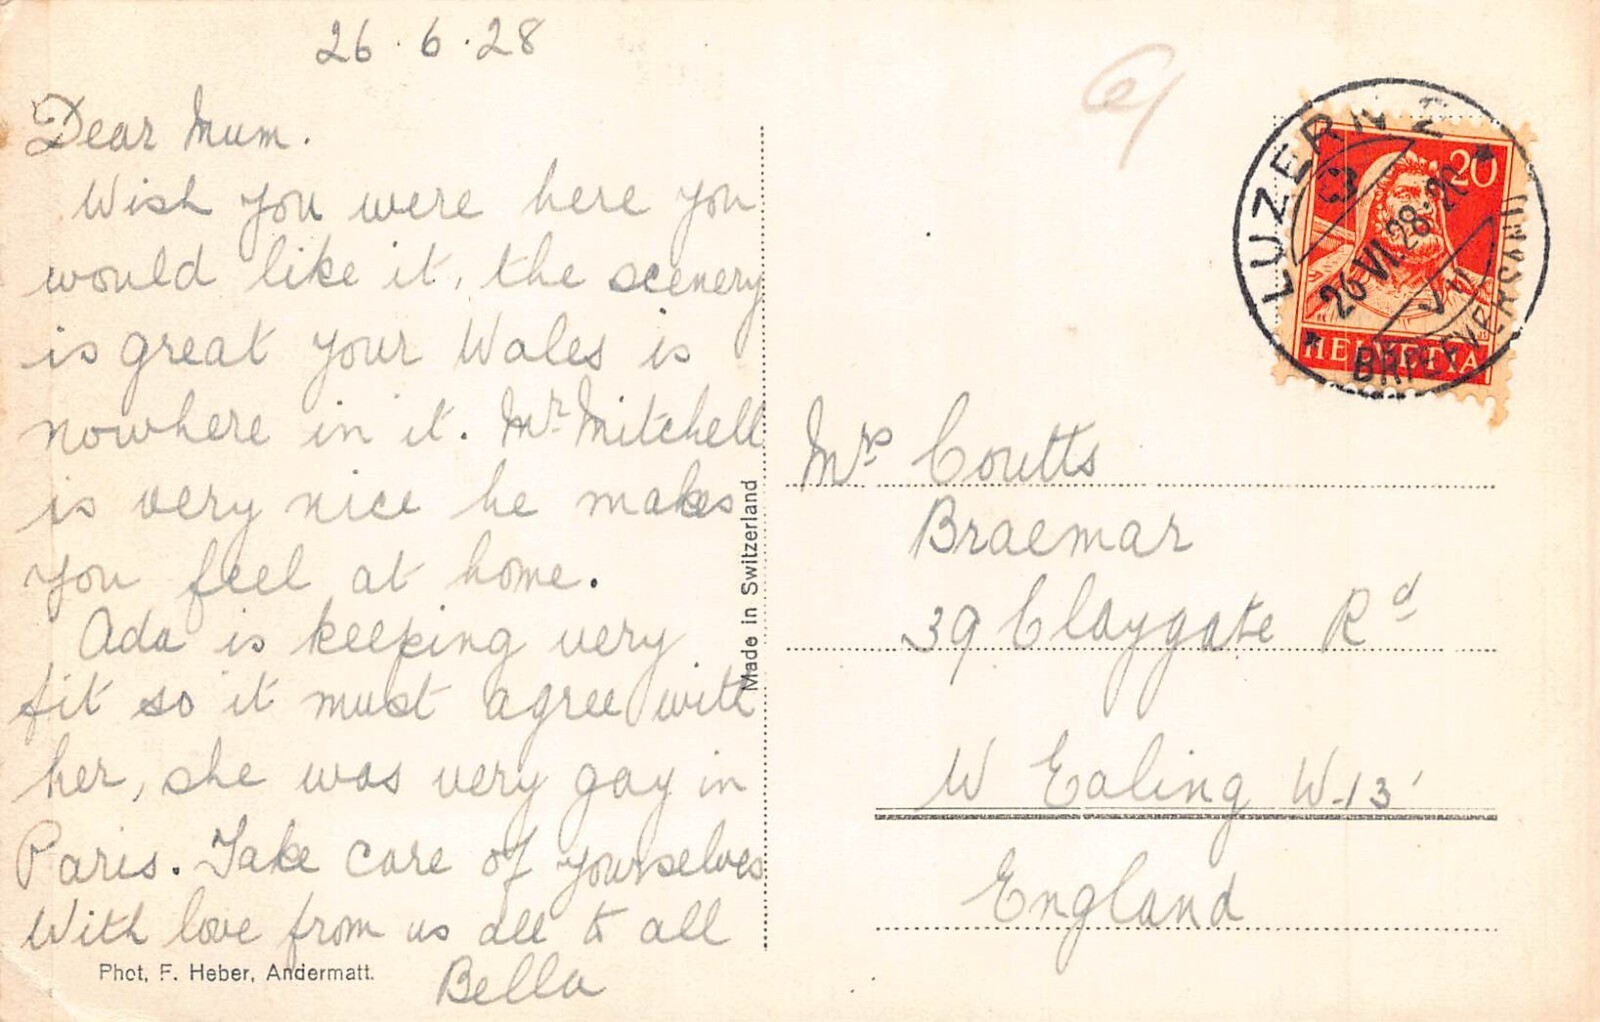 26.6.28
Dear Mum.
Wish you were here you
would like it, the scenery
is great your Wales is
nowhere in it. Mr Mitchell
is very nice he makes
you feel at home.
Ada is keeping very
fit so it must agree with
her, she was very gay in
Paris. Take care of yourselves
With love from us all to all
Bella
Phot. F. Heber, Andermatt.
Made in Switzerland
LUZERN 2
26.VI.28.20
VII
BRIEFVERSAND
20
HELVETIA
Mrs Coutts
Braemar
39 Claygate Rd
W Ealing W-13
England